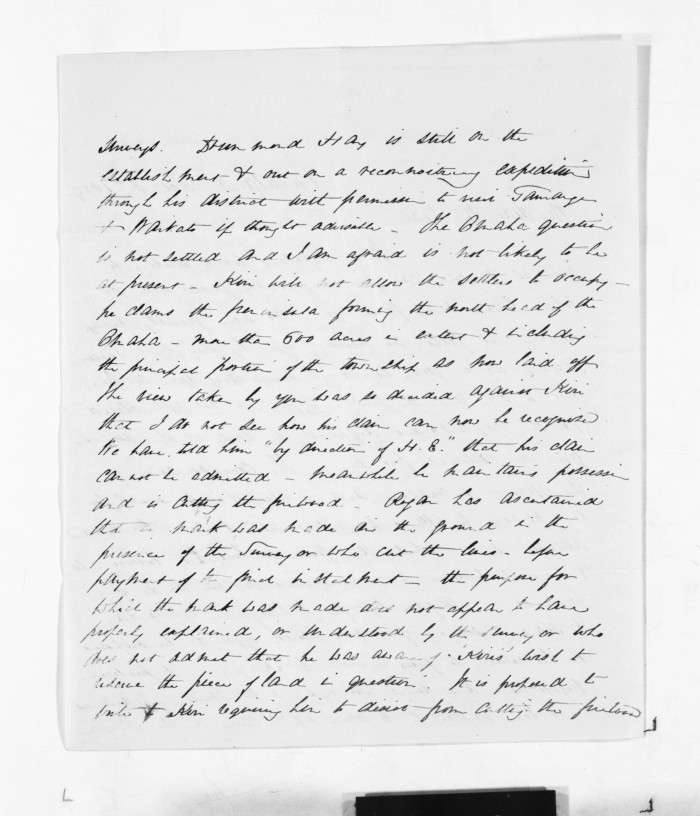 Surveys. Drummond Hay is still on the
establishment & out on a reconnoitering expedition
through his district with permission to visit Tauranga
& Waikato if thought advisable - The Omaha question
is not settled and I am afraid is not likely to be
at present - Kiri will not allow the settlers to occupy -
he claims the peninsula forming the north head of the
Omaha - more than 600 acres in extent & including
the principal portion of the township as now laid off
The view taken by you was so decided against Kiri
that I do not see how his claim can now be recognised
We have told him "by direction of H. E." that his claim
cannot be admitted - meanwhile he maintains possession
and is cutting the firewood - Rogan has ascertained
that a mark was made in the ground in the
presence of the Surveyor who cut the lines - before
payment of the final instalment - the purpose for
which the mark was made does not appear to have
properly explained, or understood by the surveyor who
does not admit that he was aware of Kiri's wish to
reserve the piece of land in question. It is proposed to
write to Kiri requiring him to desist from cutting the firewood